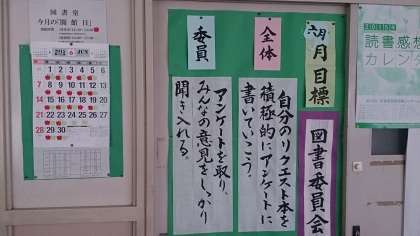 図書室
今月の「開館日」
JUN
1 2 3 4 5 6
7 8 9 10 11 12 13
14 15 16 17 18 19 20
21 22 23 24 25 26 27
28 29 30
六月目標
図書委員会
全体
自分のリクエスト本を
積極的にアンケートに
書いていこう。
委員
アンケートを取り、
みんなの意見をしっかり
聞き入れる。
読書感想
カレンダ